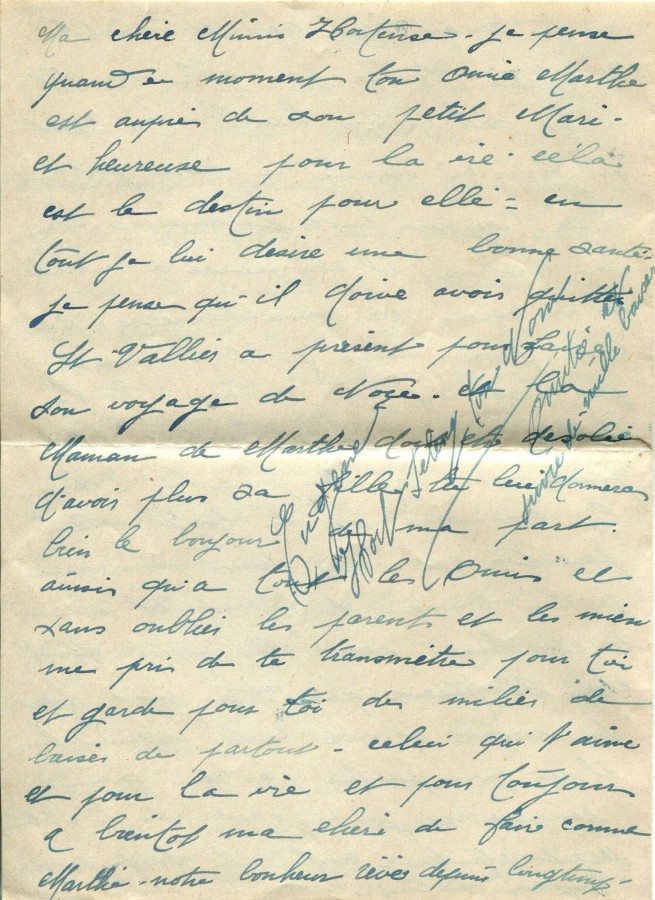 Ma chère Mimis Hortense. je pense
quand ce moment ton Amie Marthe
est aupres de son petit Mari -
et heureuse pour la vie cela
est le destin pour elle = en
tout je lui desire une bonne santé.
je pense qu'il doive avois quitter
St Vallier a présent pour faire
son voyage de Noce. et la
Maman de Marthe doit etre désolée
d'avois plus sa fille tu lui donneras
bien le bonjour de ma part.
ainsi qu'a tout les Amis et
sans oublies les parents et les mien
me pris de te transmettre pour toi
et garde pour toi des miliés de
baisés de partout - celui qui t'aime
et pour la vie et pour toujours
a bientot ma chéri de faire comme
Marthe - notre bonheur rêvés depuis longtemps -
Eugène
ton
suivre de mille baises